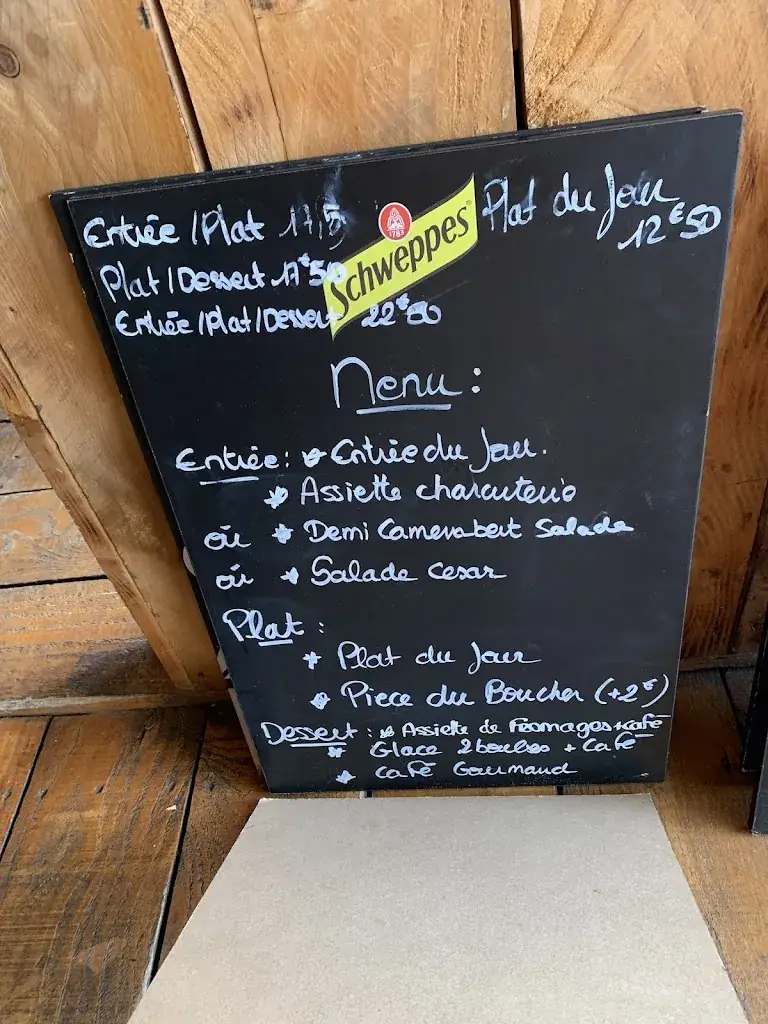 Entrée / Plat 17,5
Plat du Jour
12€50
Plat / Dessert 17€50
Schweppes
1783
Entrée / Plat / Dessert 22€00
Menu :
Entrée : * Entrée du Jour.
* Assiette charcuterie
où * Demi Camenbert Salade
où * Salade cesar
Plat :
* Plat du Jour
* Piece du Boucher (+2€)
Dessert : * Assiette de Fromages + café
* Glace 2 boules + Café
* Café Gourmand